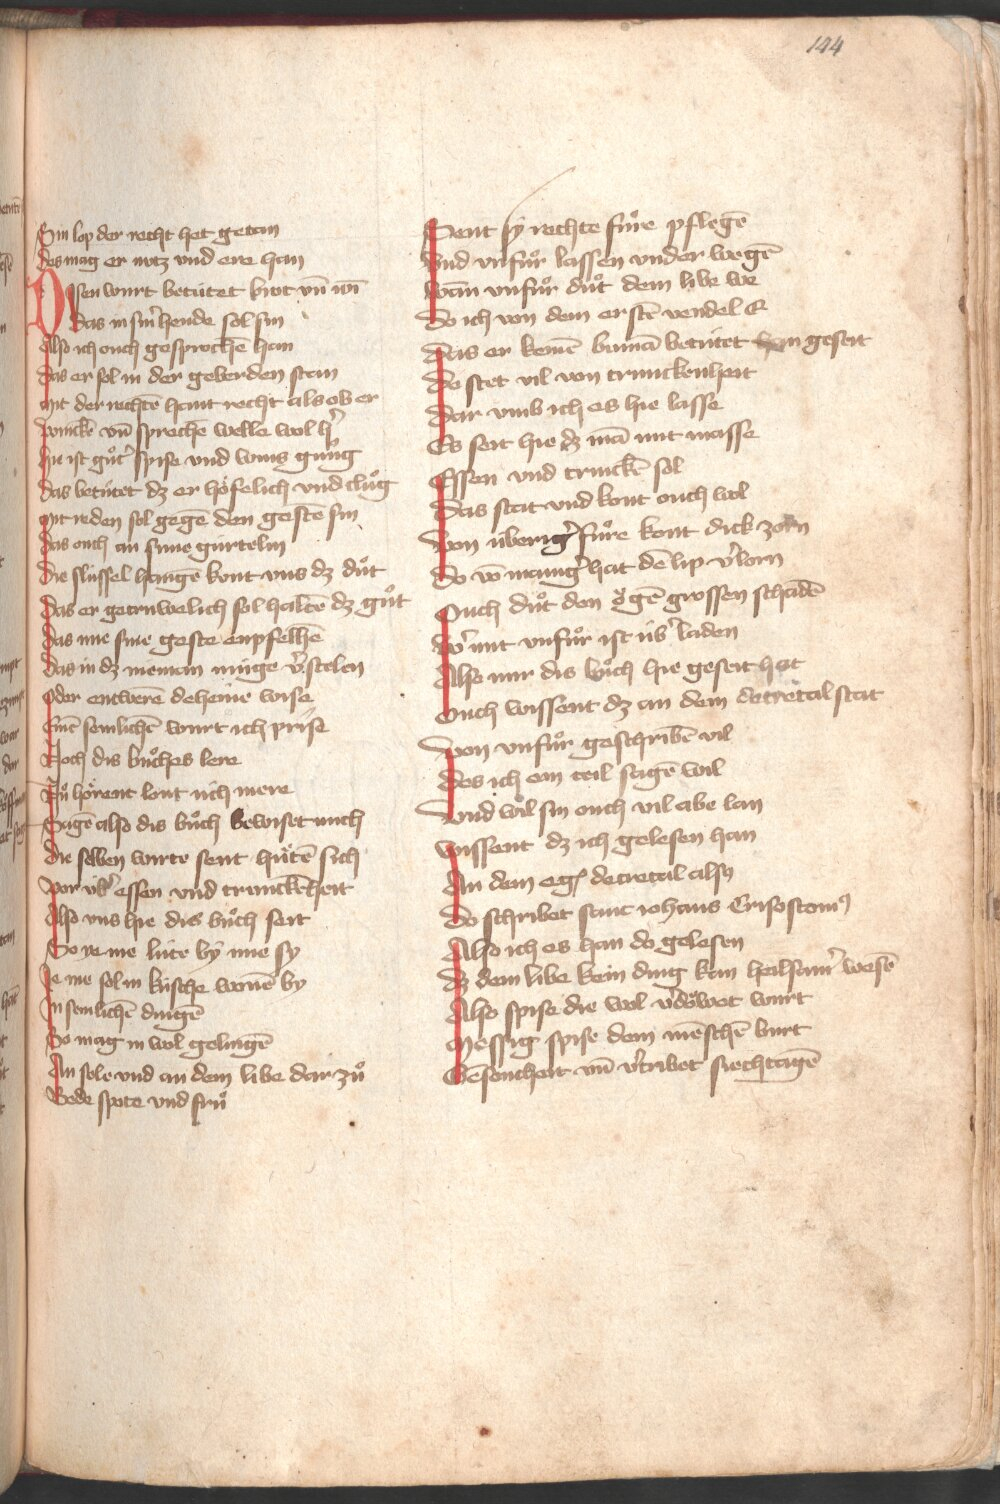 144
Sin lop der recht het getan
Des mag er nutz vnd ere han
Dissen wurt betútet brot vn̄ wī
Das in sin͛ hende sol sin
Also ich ouch gesprochē han
Das er sol in der geberden stan
Mit der rechtē hant recht als ob er
Winckē vn̄ sprechē welle wol h͛
Hie ist gůt͛ spise vnd wins gnůg
Das betútet dz er höfelich vnd clůg
Mit reden sol gegē den gestē sin
Das ouch an sime gúrtelin
Die slússel hangē kont vns dz důt
Das er getruwelich sol haltē dz gůt
Das nue sine geste enpfelhē
Das in dz nieman múge v͛stelen
Oder entwerē deheine wise
Einē semlichē wurt ich prise
Noch dis bůches lere
Nů hörent lont úch mere
Sagē also dis bůch bewiset mich
Die selben wirte sent hútē sich
Vor úb͛ essen vnd trunckēheit
Also vns hie dis bůch seit
So ye me lúte by nue sy
Ie me sol in kúsche wonē by
In semlichē dingē
So mag in wol gelingē
An sele vnd an dem libe dar zů
Bede spote vnd frů
Sent sy rechte fůre pflegē
Vnd vnfůr lassen vnder wegē
Wan̄ vnfůr důt dem libe we
Do ich von dem erstē vendel E
Das er keinē bumā betútet geseit
Do stet vil von trunckenheit
Dar vmb ich es hie lasse
Es seit hie dz mā mit masse
Essen vnd trinckē sol
Das stat vnd kont ouch wol
Von úberig͛ fůre kont dick zorn
Do vō manig͛ hat dē lip v͛lorn
Ouch důt den ögē grossen schadē
W͛ mit vnfůr ist úb͛ laden
Also mir dis bůch hie geseit hat
Ouch wissent dz an dem decretal stat
Von vnfůr geschribē vil
Des ich ein teil sagē wil
Vnd wil sin ouch vil abe lan
Wissent dz ich gelesen han
An dem decretal also
Do schribet sanc iohans Crisostom⁹
Also ich es han do gelesen
Dz dem libe kein ding kan heilsam͛ wesē
Also spise die wol v͛döwet wurt
Messig spise dem mēschē burt
Gesuntheit vn̄ v͛tribet siechtagē